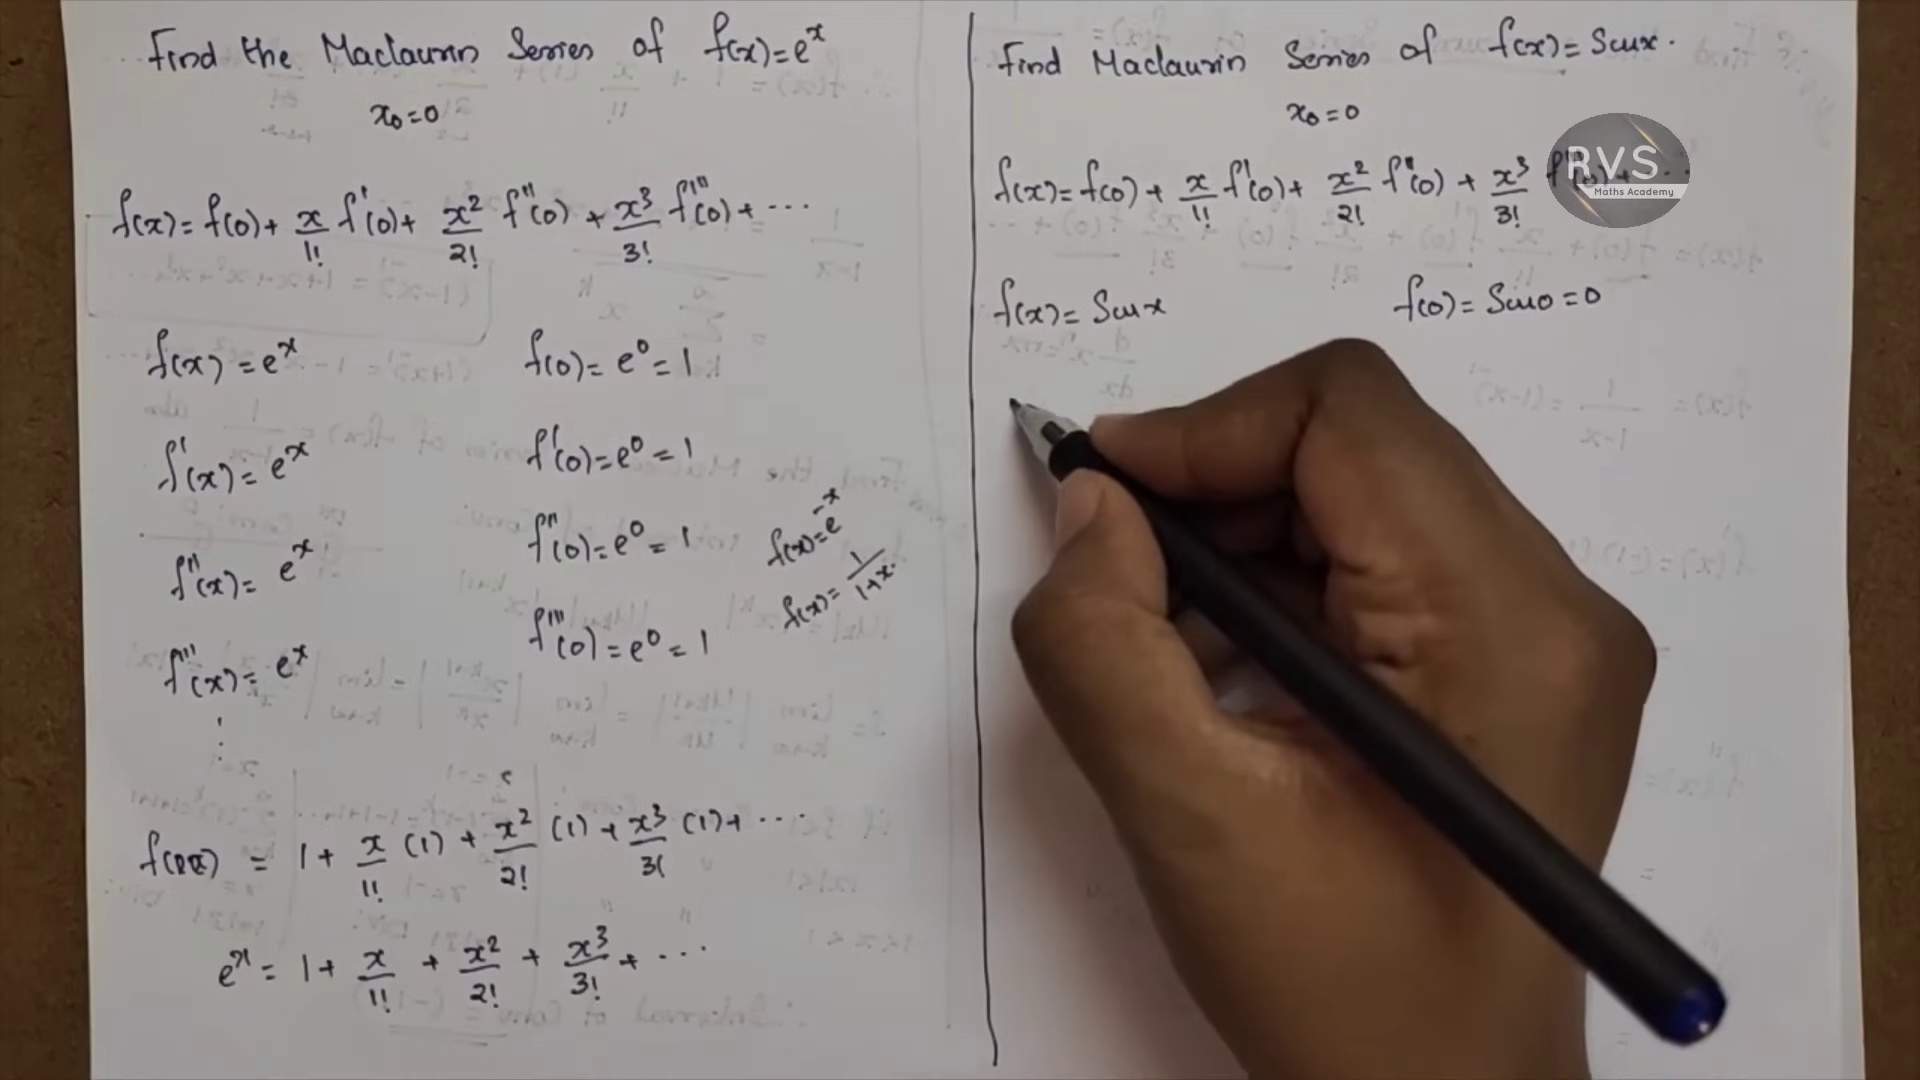 Find the Maclaurin Series of f(x)=eˣ
x₀=0
f(x)= f(0)+ x/1! f'(0)+ x²/2! f''(0) + x³/3! f'''(0)+ ...
f(x)=eˣ f(0)= e⁰ = 1
f'(x)= eˣ f'(0)=e⁰ = 1
f''(x)= eˣ f''(0)=e⁰ = 1
f'''(x)= eˣ f'''(0)=e⁰ = 1
f(x)=e⁻ˣ
f(x)= 1/1+x.
= 1+ x/1! (1) + x²/2! (1) + x³/3! (1)+ ...
eˣ = 1+ x/1! + x²/2! + x³/3! + ...
Find Maclaurin Series of f(x)= Sinx.
x₀=0
f(x)= f(0)+ x/1! f'(0)+ x²/2! f''(0) + x³/3! f'''(0)+ ...
RVS
Maths Academy
f(x)= Sinx f(0)= Sin0 = 0